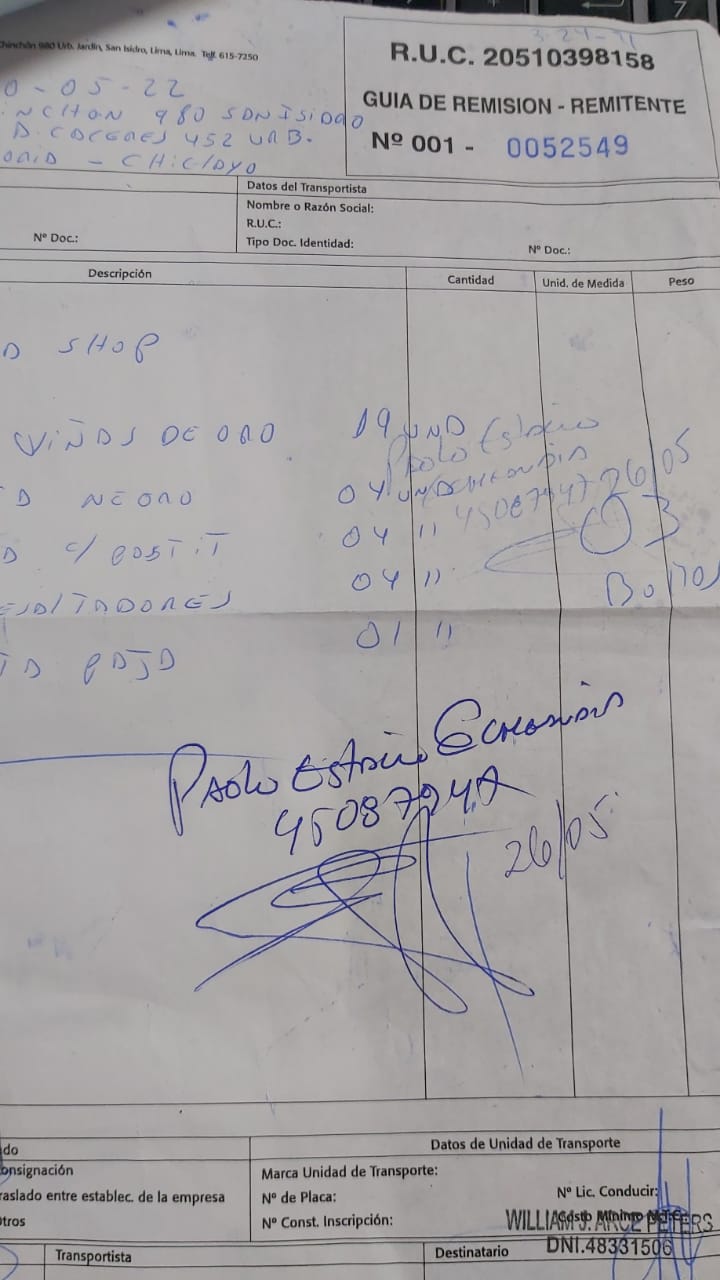 Chinchón 980 Urb. Jardín, San Isidro, Lima, Lima. Telf. 615-7250
3-24-71
R.U.C. 20510398158
GUIA DE REMISION - REMITENTE
Nº 001 - 0052549
0-05-22
NCHON 980 SAN ISIDRO
D. CACERES 452 URB.
- CHICLAYO
Datos del Transportista
Nombre o Razón Social:
R.U.C.:
Tipo Doc. Identidad:
Nº Doc.:
Nº Doc.:
Descripción
Cantidad
Unid. de Medida
Peso
D SHOP
VIÑAS DE ORO 19 UND
Paolo Estacio
D NEGRO 04 UND
45087947 26/05
D C/ POSTIT 04 "
03
ESALTADORES 04 "
Bultos
TA BAJA 01 "
Paolo Estacio Echeandia
45087947
26/05
do
Datos de Unidad de Transporte
onsignación
Marca Unidad de Transporte:
raslado entre establec. de la empresa
Nº de Placa:
Nº Lic. Conducir:
tros
Nº Const. Inscripción:
Costo Mínimo
WILLIAM J. ARCE PETERS
DNI.48331506
Transportista
Destinatario